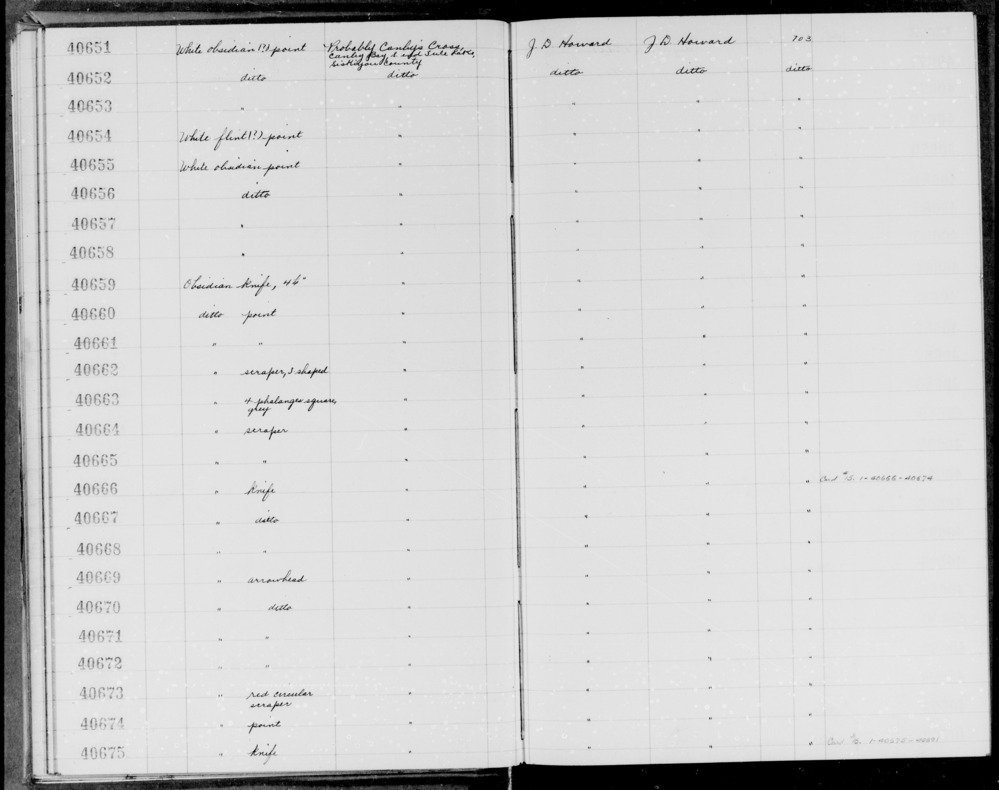 40651 White obsidian (?) point Probably Canby's Cross, J. D. Howard J. D. Howard 703
Canby Bay, S end Tule Lake,
Siskiyou County
40652 ditto ditto ditto ditto ditto
40653 " " " " "
40654 White flint (?) point " " " "
40655 White obsidian point " " " "
40656 ditto " " " "
40657 " " " " "
40658 " " " " "
40659 Obsidian knife, 46" " " " "
40660 ditto point " " " "
40661 " " " " " "
40662 " scraper, S shaped " " " "
40663 " 4 phalanges square, " " " "
grey
40664 " scraper " " " "
40665 " " " " " "
40666 " knife " " " " Card #'s. 1-40666-40674
40667 " ditto " " " "
40668 " " " " " "
40669 " arrowhead " " " "
40670 " ditto " " " "
40671 " " " " " "
40672 " " " " " "
40673 " red circular " " " "
scraper
40674 " point " " " "
40675 " knife " " " " Card #'s.